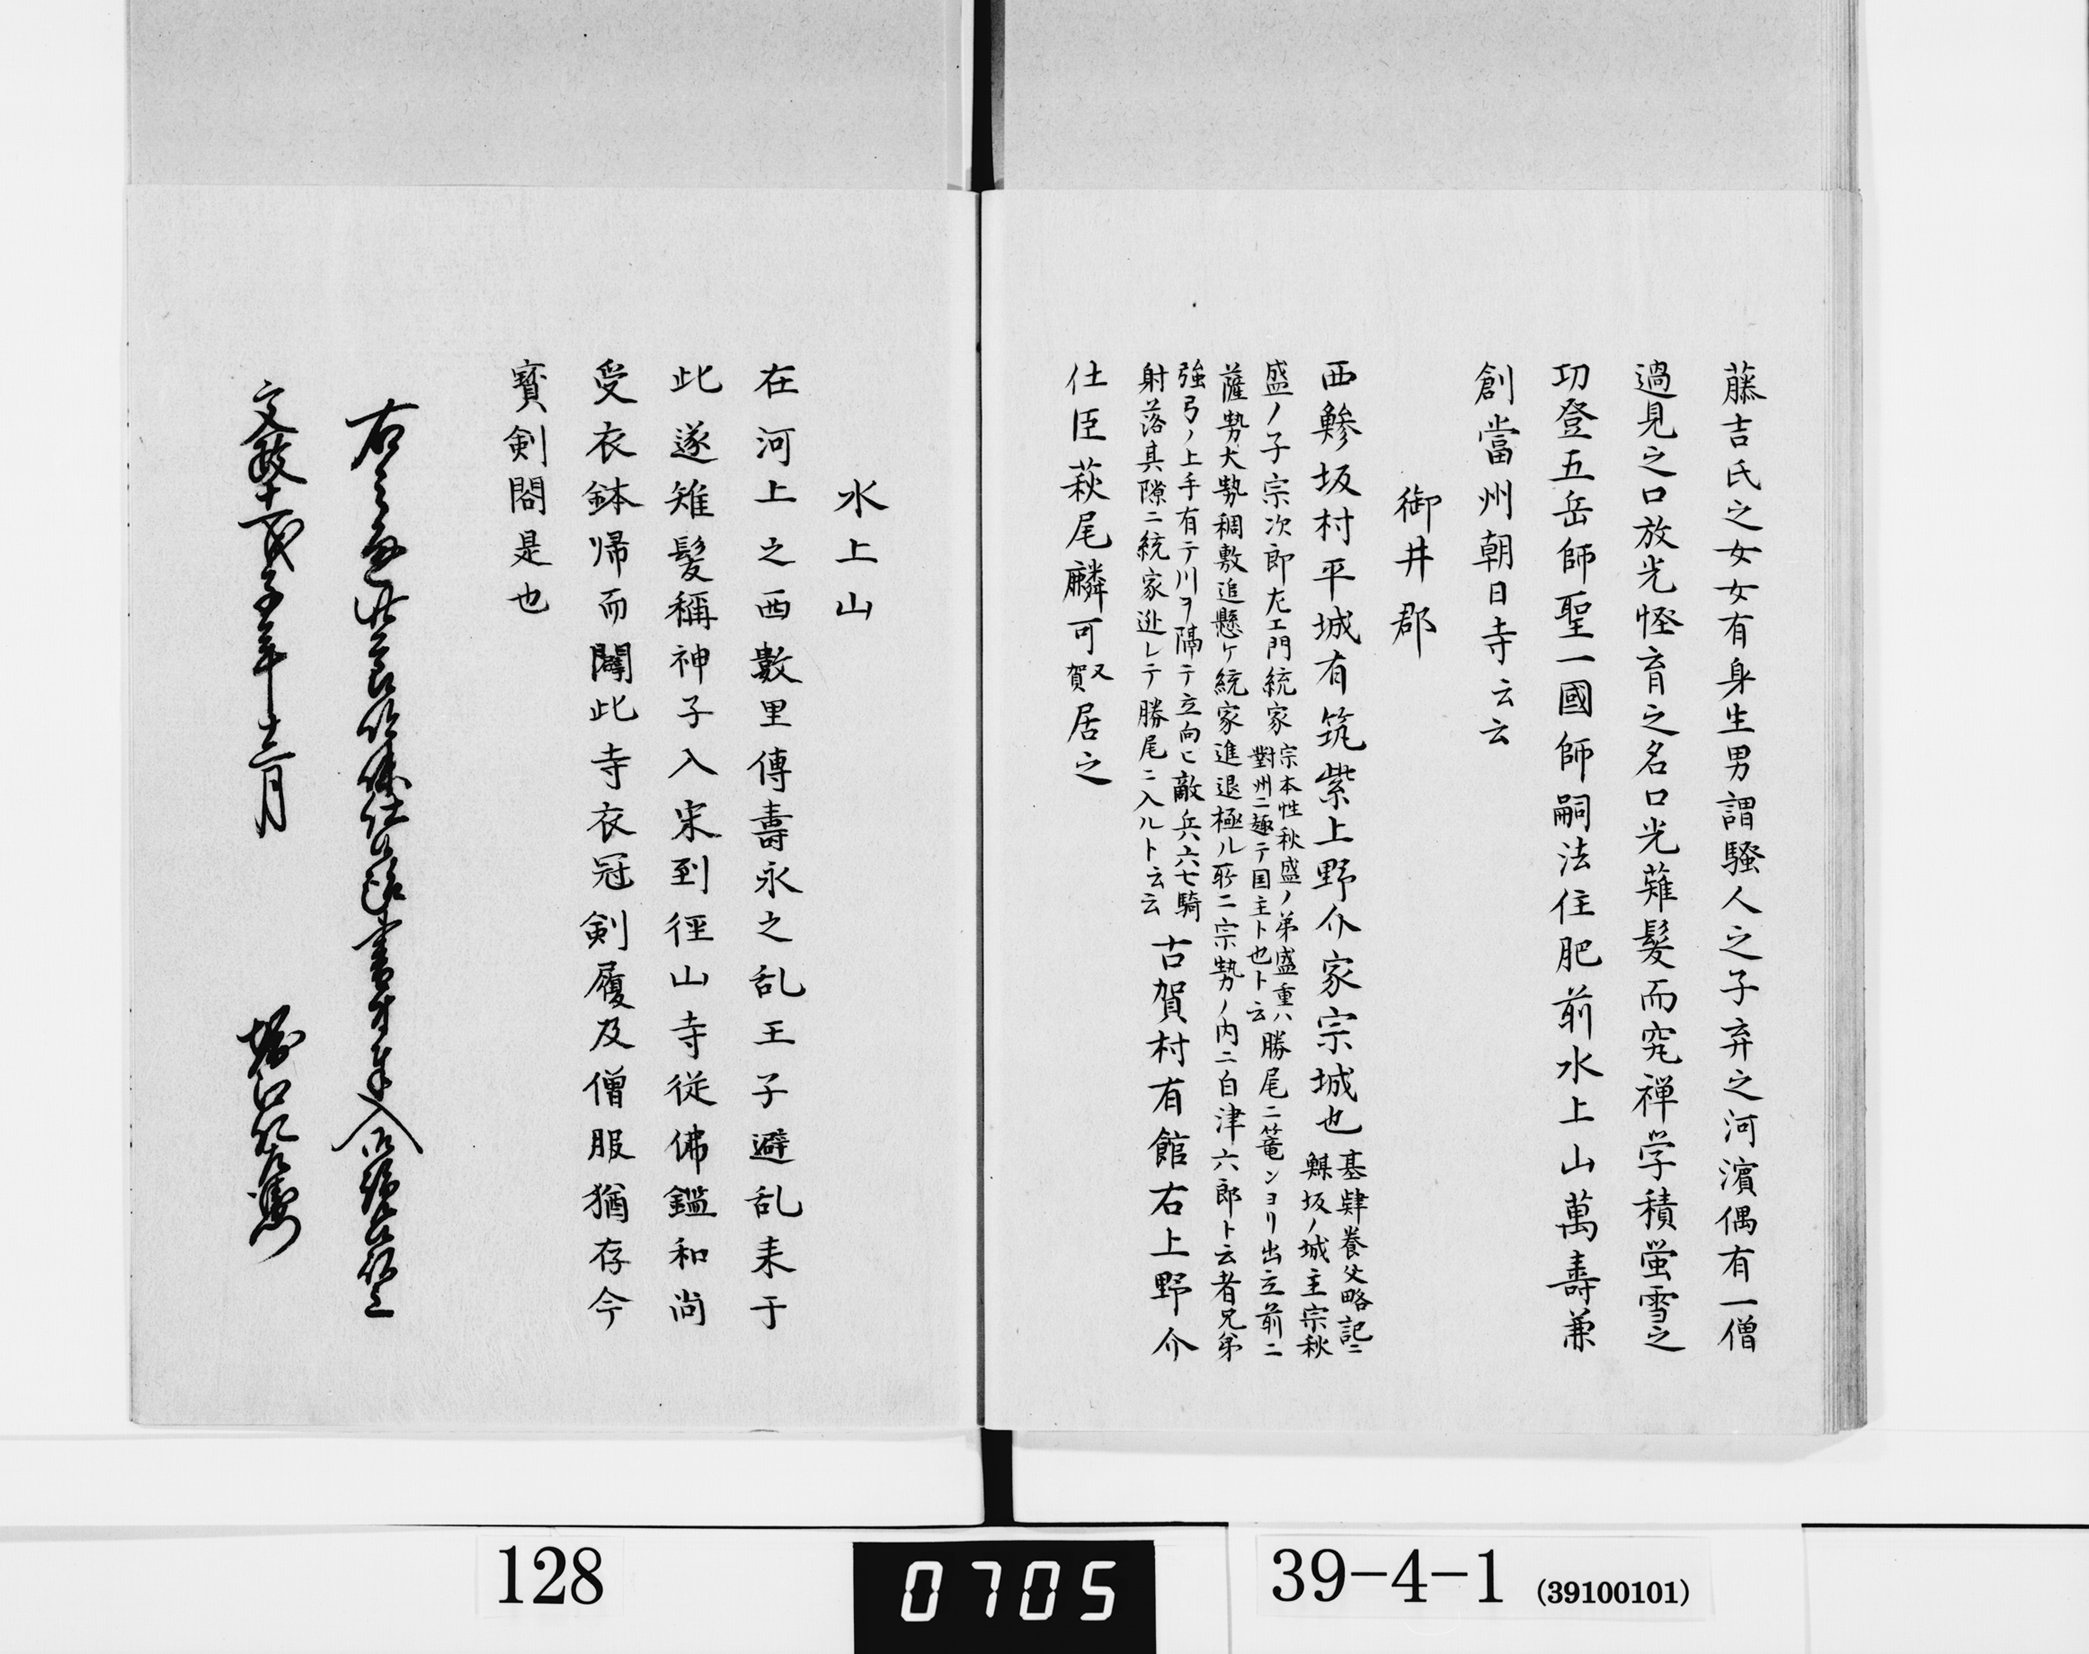 藤吉氏之女女有身生男謂騒人之子弃之河濱偶有一僧
過見之口放光怪育之名口光薙髪而究禅学積蛍雪之
功登五岳師聖一國師嗣法住肥前水上山萬壽兼
創當州朝日寺云云
御井郡
西鯵坂村平城有筑紫上野介家宗城也
基肄養父略記ニ
鯵坂ノ城主宗秋
盛ノ子宗次郎左エ門統家
宗本性秋盛ノ弟盛重ハ
對州ニ趣テ国主ト也ト云
勝尾ニ篭ンヨリ出立前ニ
薩勢大勢稠敷追懸ケ統家進退極ル所ニ宗勢ノ内ニ白津六郎ト云者兄弟
強弓ノ上手有テ川ヲ隔テ立向ヒ敵兵六七騎
射落其隙ニ統家迯レテ勝尾ニ入ルト云云
古賀村有館右上野介
仕臣萩尾麟可又賀居之
水上山
在河上之西數里傳壽永之乱王子避乱来于
此遂雉髪稱神子入宋到徑山寺従佛鑑和尚
受衣鉢帰而闢此寺衣冠剣履及僧服猶存今
寳剣閣是也
文政十一戊子年十二月
128
0705
39-4-1 (39100101)